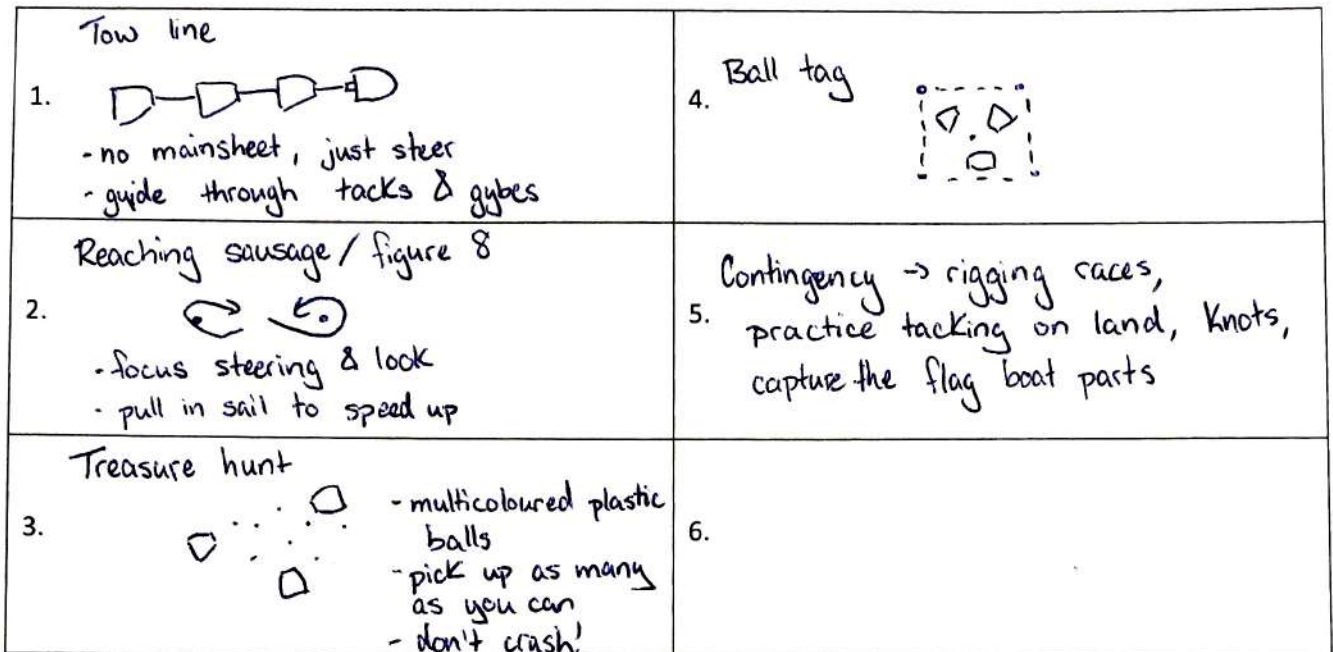 Tow line
1.
- no mainsheet, just steer
- guide through tacks & gybes
Reaching sausage / figure 8
2.
- focus steering & look
- pull in sail to speed up
Treasure hunt
3.
- multicoloured plastic
balls
- pick up as many
as you can
- don't crash!
4. Ball tag
Contingency -> rigging races,
5. practice tacking on land, Knots,
capture the flag boat parts
6.